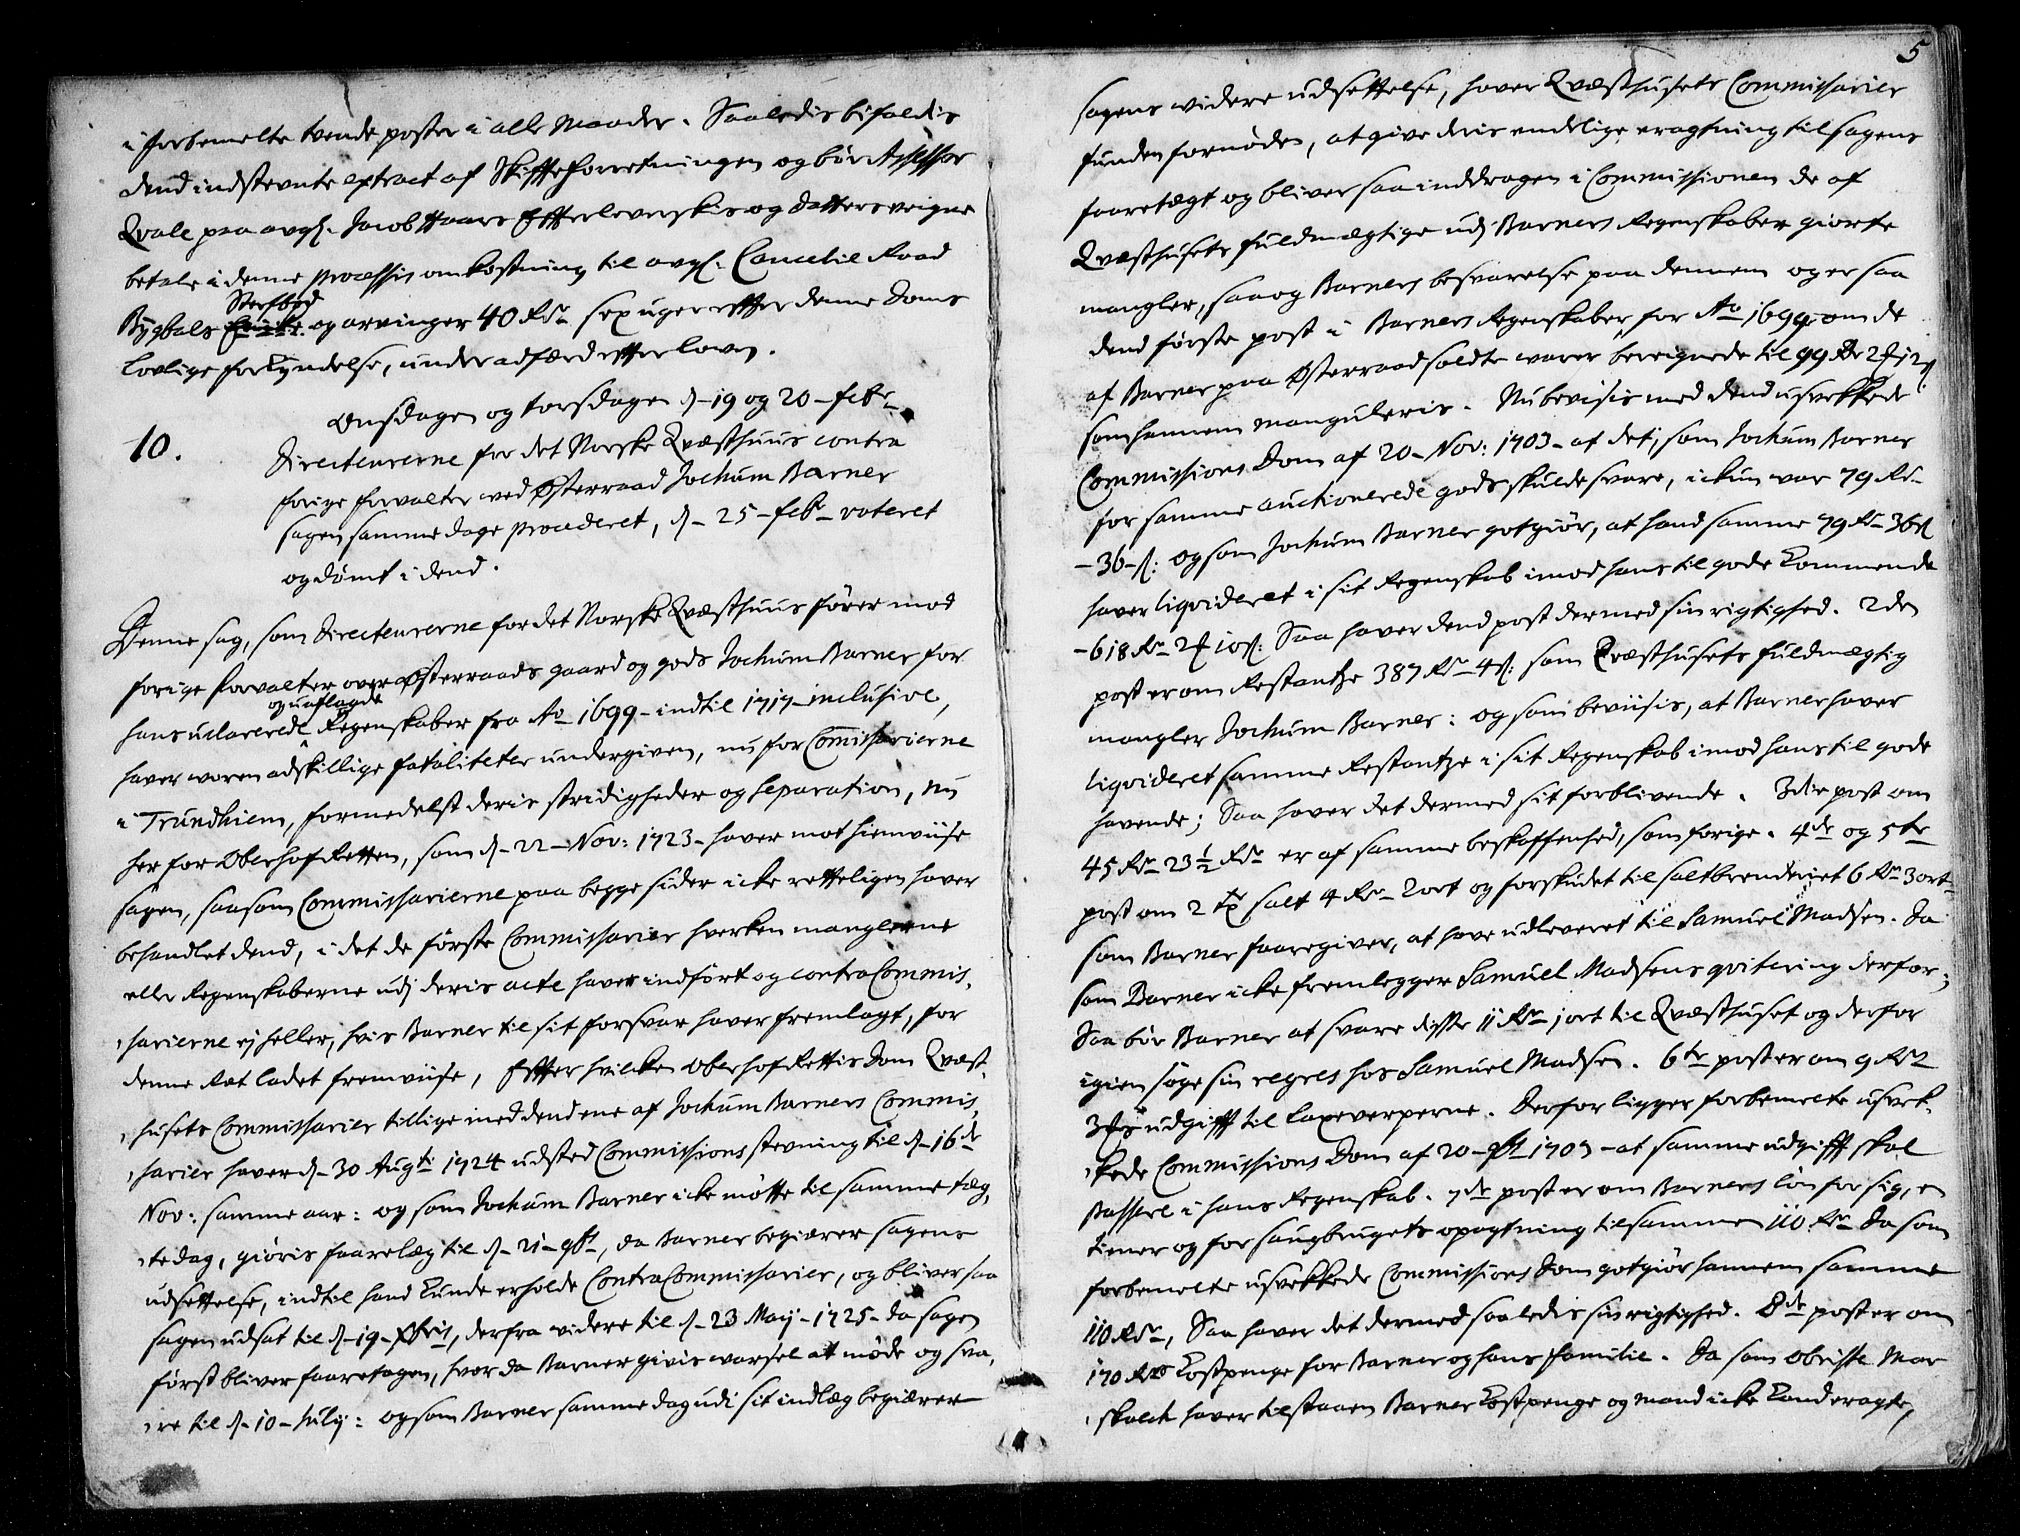 i forbemelte tvende poster i alle Maader. Saaledis beholdis
dend indstevnte extract af Skiffteforretningen og bør Assessor
Qvale paa avgl. Jacob Haars Effterleverskis og datters veigne
betale i denne processis omkostning til avgl. Cancelie Raad
Sterfboed
Bygbals Encke og arvinger 40 Rdr sex uger effter denne Doms
lovlige forkyndelse, under adfærd effter loven.
Onsdagen og torsdagen d. 19 og 20 febr.
10.
Directeurerne for det Norske Qvæsthuus contra
forige forvalter ved Østerraad Jochum Barner
sagen samme dage procederet, d. 25 febr. voteret
og dømt i dend.
Denne sag, som Directeurerne for det Norske Qvæsthuus fører mod
forige forvalter over Østerraads gaard og gods Jochum Barner for
og uaflagde
hans uclarerede Regenskaber fra Ao 1699 indtil 1717 inclusive,
haver voren adskillige fataliteter undergiven, nu for Commissarierne
i Trundhiem, formedelst deris stridigheder og separation, nu
her for OberhofRetten, som d. 22 Nov: 1723 haver mot hiemviise
sagen, saasom Commissarierne paa begge sider icke retteligen haver
behandlet dend, i det de første Commissarier hverken manglerne
elle Regenskaberne udj deris acte haver indført og contraCommis-
sarierne ej heller, hvis Barner til sit forsvar haver fremlagt, for
denne Ret ladet fremviise, Effter hvilcken OberhofRettis Dom Qvæst-
husets Commissarier tillige med dend ene af Jochum Barners Commis-
sarier haver d. 30 Augti 1724 udsted Commissions stevning til d. 16de
Nov: samme aar: og som Jochum Barner icke møtte til samme tæg-
tedag, giøris faarelæg til d. 21 9br, da Barner begiærer sagens
udsettelse, indtil hand kunde erholde ContraCommissarier, og bliver saa
sagen udsat til d. 19 Xbris, derfra videre til d. 23 Maij 1725 da sagen
først bliver faaretagen, hvor da Barner givis varsel at møde og sva-
re til d. 10 July: og som Barner samme dag udi sit indlæg begiærer
5
sagens videre udsettelse, haver Qvæsthusets Commissarier
funden fornøden, at give deris endelige eragtning til sagens
faaretægt og bliver saa inddragen i Commissionen de af
Qvæsthusets fuldmægtige udj Barners Regenskaber giorte
mangler, saa og Barners besvarelse paa dennem og er saa
dend første post i Barners Regenskaber for Ao 1699 om de
af Barner paa Østerraad soldte varer bereignede til 99 Rdr 2 12
som hannem manguleris. Nu bevisis med dend usvekkede
Commissions Dom af 20 Nov: 1703 af det, som Jochum Barner
for samme auctionerede gods skulde svare, ickun var 79 Rdr
36 ß: og som Jochum Barner gotgiør, at hand samme 79 Rdr 36 ß
haver liqvideret i sit Regenskab imod hans til gode kommende
618 Rdr 2 10 ß: Saa haver dend post dermed sin rigtighed. 2den
post er om Restantze 387 Rdr 4 ß: som Qvæsthusets fuldmægtig
mangler Jochum Barner: og som beviisis, at Barner haver
liqvideret samme Restantze i sit Regenskab imod hans til gode
havende; Saa haver det dermed sit forblivende. 3die post om
45 Rdr 23 ½ Rdr er af samme beskaffenhed, som forige. 4de og 5te
post om 2 tr salt 4 Rdr 2 ort og forskudet til saltbrenderiet 6 Rdr 3 ort
som Barner faaregiver, at have udleveret til Samuel Madsen. Da
som Barner icke fremlegger Samuel Madsens qvitering derfor;
Saa bør Barner at svare disse 11 Rdr 1 ort til Qvæsthuset og derfor
igien søge sin regres hos Samuel Madsen. 6te post er om 9 Rdr
udgifft til laxeverperne. Derfor ligger forbemelte usvek-
kede Commissions Dom af 20 9br 1703 at samme udgifft skal
passere i hans Regenskab. 7de post er om Barners løn for sig, en
tiener og for saugbrugets opagtning tilsammen 110 Rdr. Da som
forbemelte usvekkede Commissions Dom gotgiør hannem samme
110 Rdr, Saa haver det dermed saaledis sin rigtighed. 8de post er om
170 Rdr kostpenge for Barner og hans familie. Da som Obriste Mar-
skalck haver tilstaaen Barner kostpenge og mand icke kand eragte,